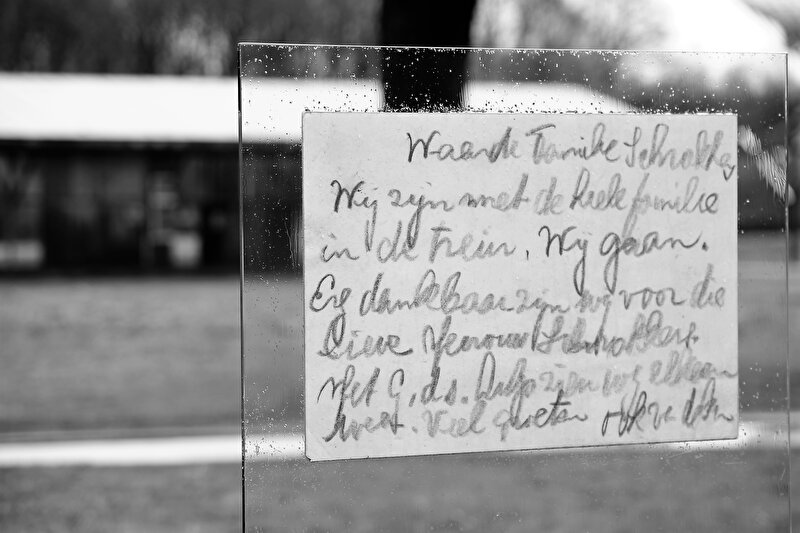 Waarde Familie Scholten
Wij zijn met de hele familie
in de trein. Wij gaan.
Erg dankbaar zijn wij voor die
lieve Mevrouw
Met G.ds. hulp zien wij elkaar
weer. Veel groeten